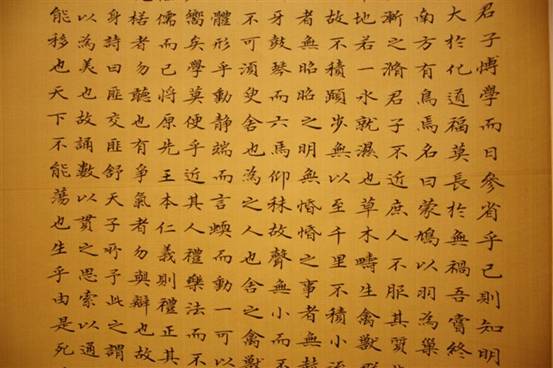 君子博學而日參省乎己則知明
大於化道福莫長於無禍吾嘗終
南方有鳥焉名曰蒙鳩以羽為巢
漸之滫君子不近庶人不服其質
地若一水就濕也草木疇生禽獸
故不積蹞步無以至千里不積小
者無昭昭之明無惛惛之事者無赫
牙鼓琴而六馬仰秣故聲無小而不
不可須臾舍也為之人也舍之禽獸
體形乎動靜端而言蝡而動一可以
嚮矣學莫便乎近其人禮樂法而不
儒而已將原先王本仁義則禮正其
楛者勿聽也有爭氣者勿與辯也故
身詩曰匪交匪舒天子所予此之謂
以為美也故誦數以貫之思索以通
能移也天下不能蕩也生乎由是死